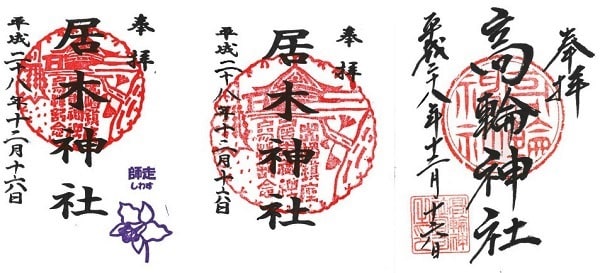 奉拝
居木神社
平成二十八年十二月十六日
師走
しわす
奉拝
居木神社
平成二十八年十二月十六日
奉拝
高輪神社
平成二八年十二月十六日